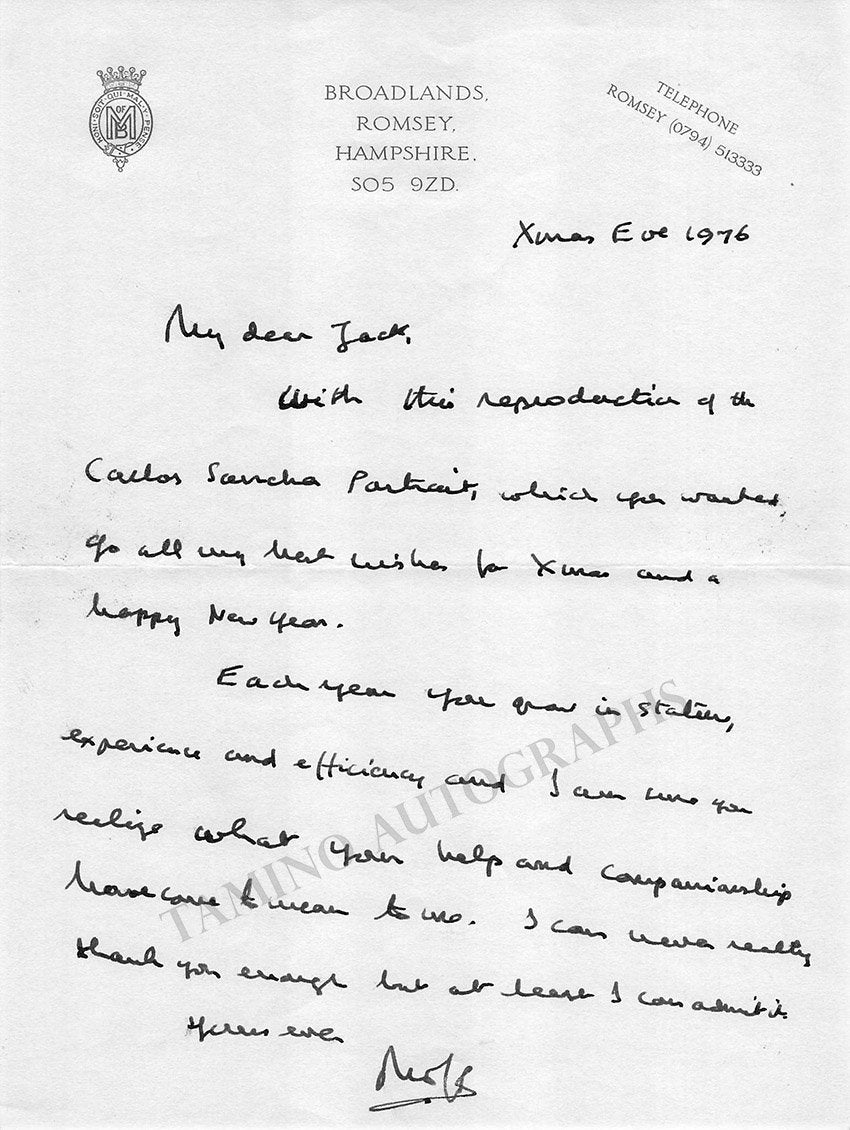 HONI·SOIT·QUI·MAL·Y·PENSE
M OF B
BROADLANDS,
ROMSEY,
HAMPSHIRE.
SO5 9ZD.
TELEPHONE
ROMSEY (0794) 513333
Xmas Eve 1976
My dear Jack,
With this reproduction of the
Carlos Sancha Portrait, which you wanted,
go all my best wishes for Xmas and a
happy New Year.
Each year you grow in stature,
experience and efficiency and I am sure you
realize what your help and companionship
have come to mean to me. I can never really
thank you enough but at least I can admit it.
Yours ever
TAMINO AUTOGRAPHS